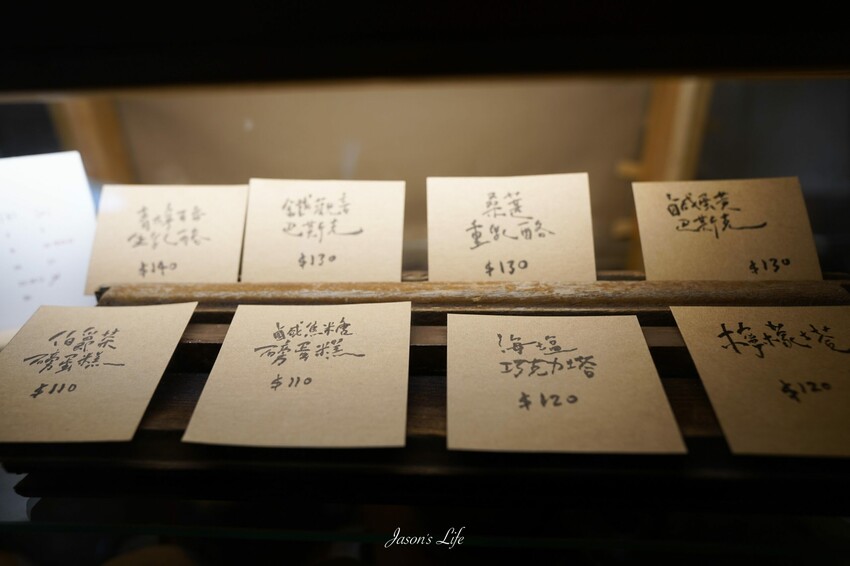 生乳酪
$140
鐵觀音
巴斯克
$130
桑葚
重乳酪
$130
鹹蛋黃
巴斯克
$130
伯爵茶
磅蛋糕
$110
鹹焦糖
磅蛋糕
$110
海塩
巧克力塔
$120
檸檬塔
$120
Jason's Life